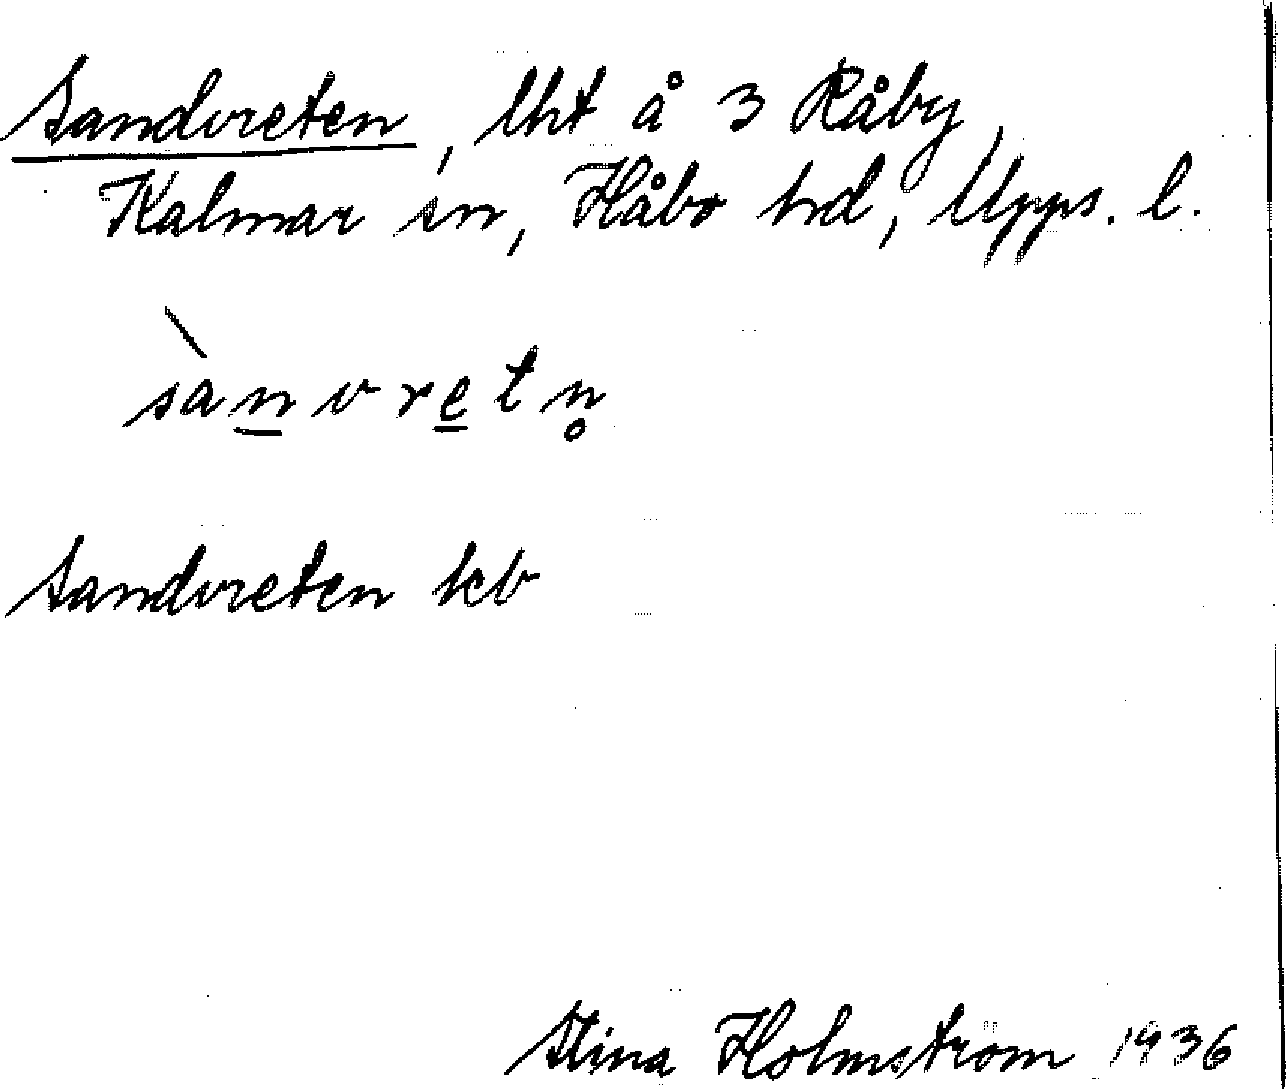 Sandvreten, lht å 3 Råby,
Kalmar sn, Håbo hd, Upps. l.
sà̱nvre̱tn̥
Sandvreten kb
Stina Holmström 1936